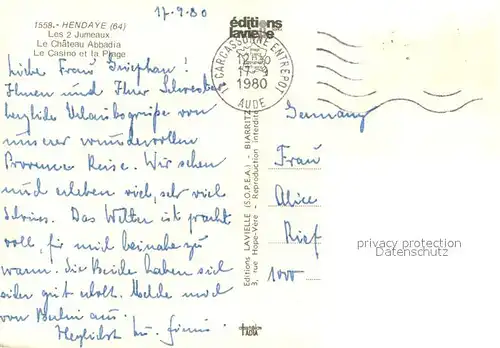 17.9.80
1558.- HENDAYE (64)
Les 2 Jumeaux
Le Château Abbadia
Le Casino et la Plage
éditions
lavielle
11 CARCASSONNE ENTREPOT
17-9
1980
AUDE
Liebe Frau
Ihnen und Ihrer Schwester
herzliche Urlaubsgrüße von
unserer wundervollen
Provence Reise. Wir sehen
und erleben viel, sehr viel
Schönes. Das Wetter ist pracht
voll, für mich beinahe zu
warm. die Beide haben sich
gut erholt. Melde mich
von Berlin aus.
Herzlichst
Germany
Frau
Alice
Rief
1000
Editions LAVIELLE (S.O.P.E.A.) - BIARRITZ
3, rue Hope-Vère - Reproduction interdite
privacy protection
Datenschutz